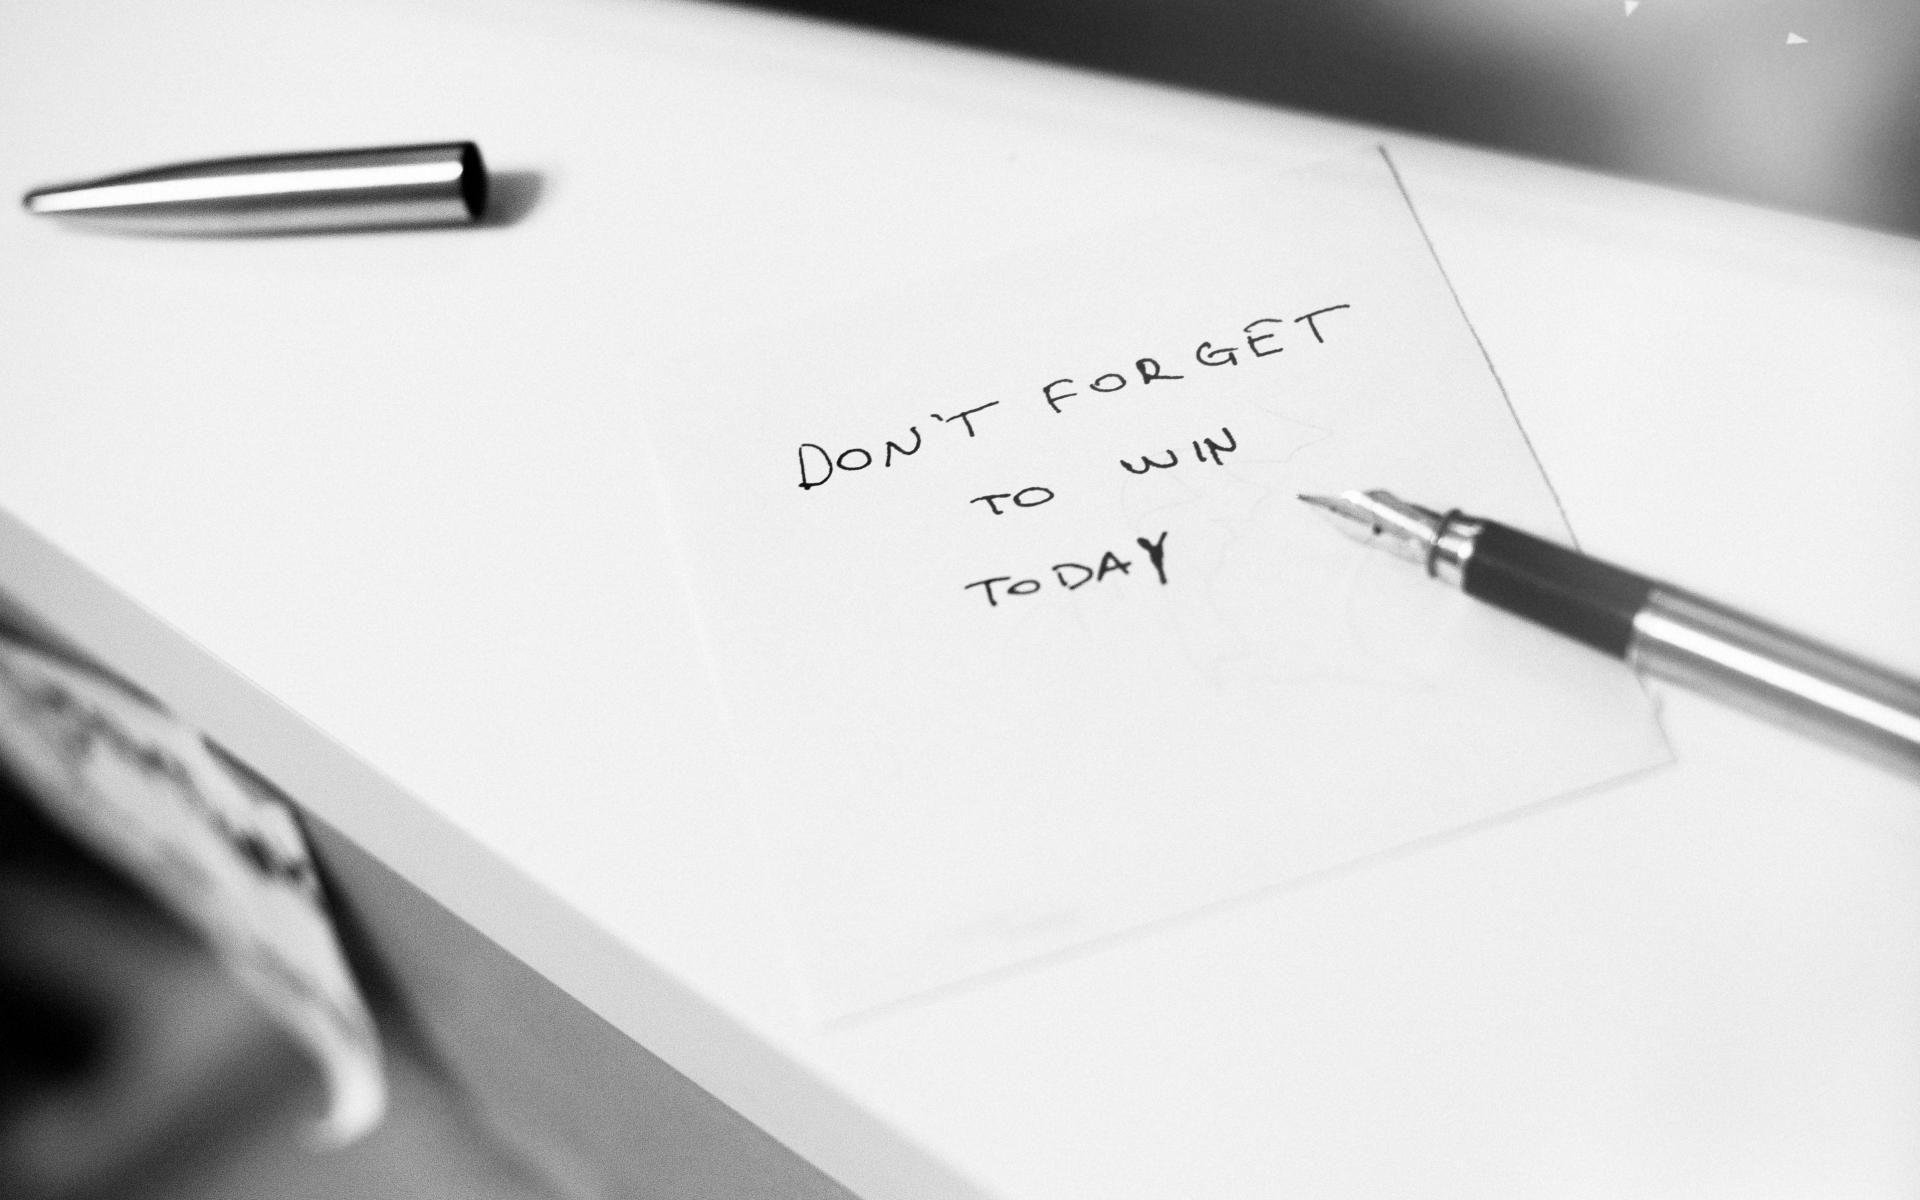 DON'T FORGET
TO WIN
TODAY